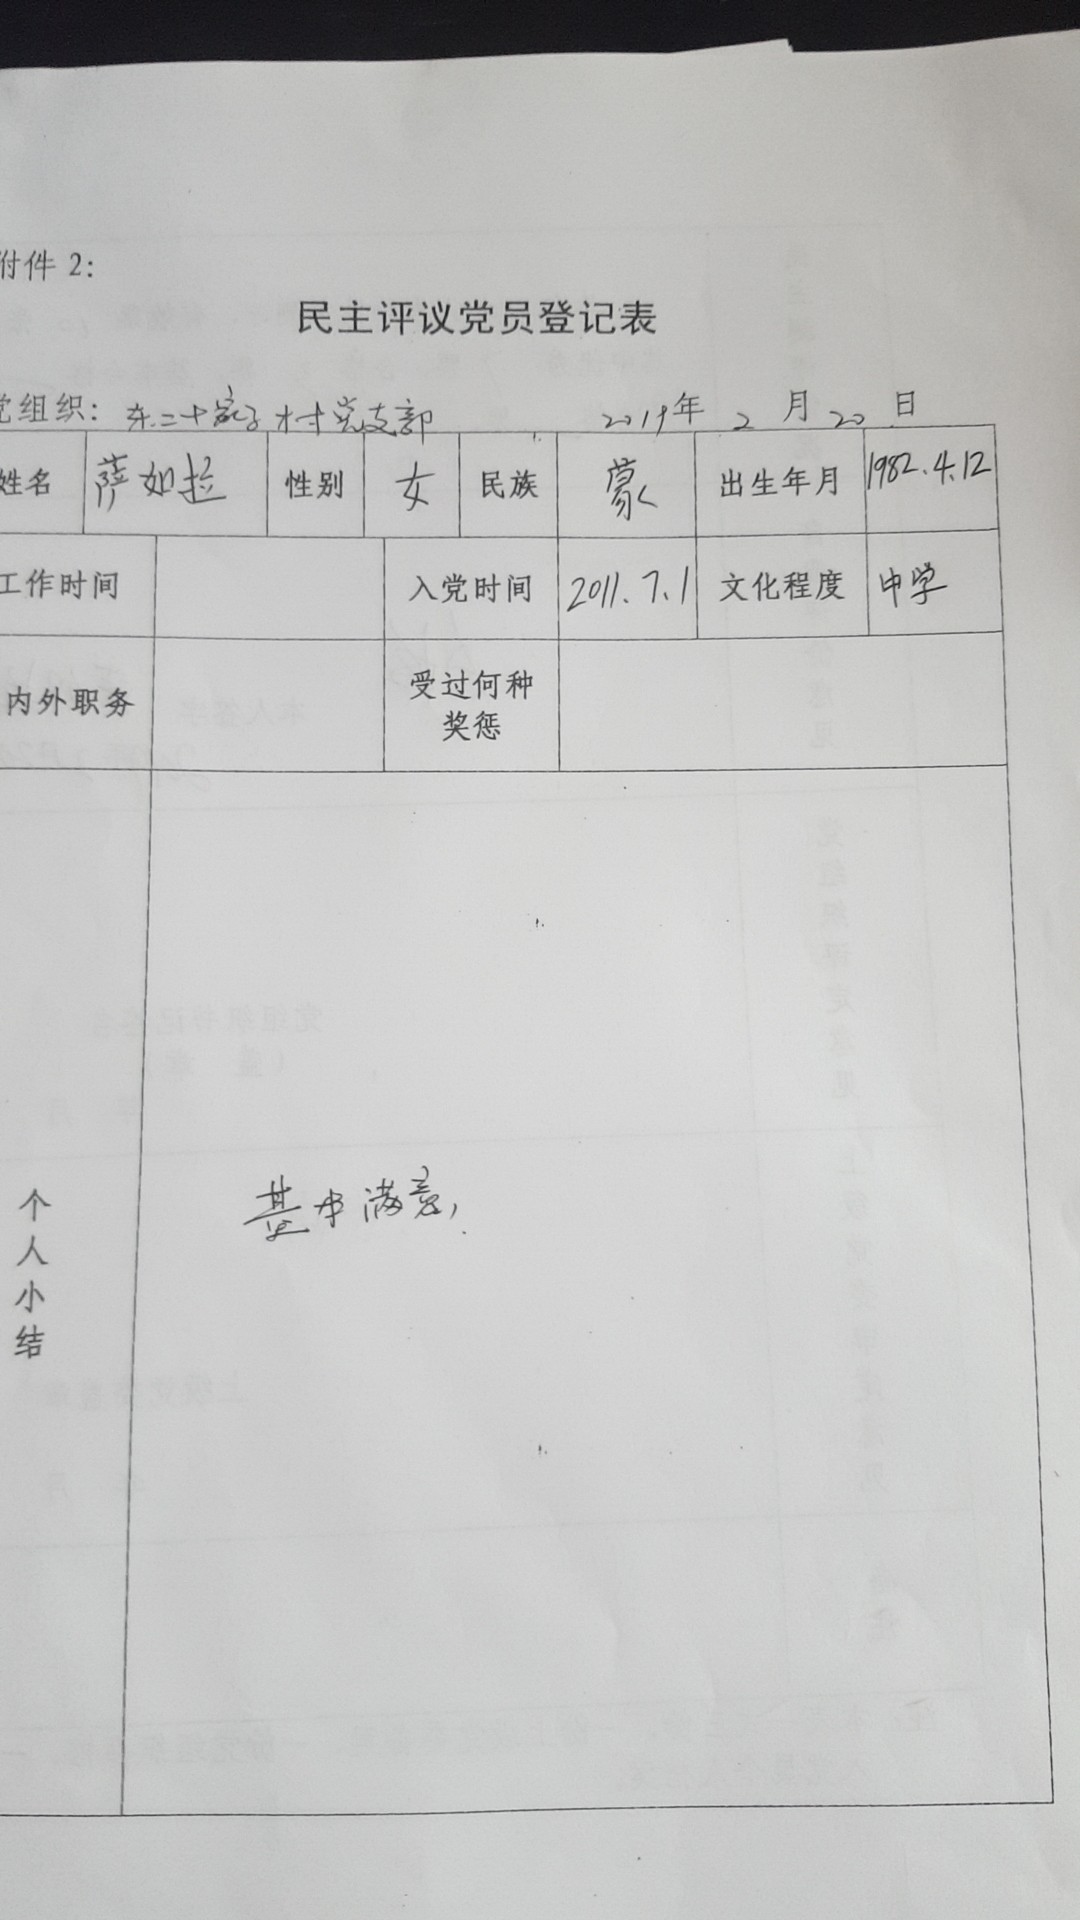 附件 2:
民主评议党员登记表
党组织: 东二十家子村党支部 2019年 2 月 20 日
姓名 萨如拉 性别 女 民族 蒙 出生年月 1982.4.12
工作时间 入党时间 2011.7.1 文化程度 中学
内外职务 受过何种
奖惩
基本满意,
个
人
小
结